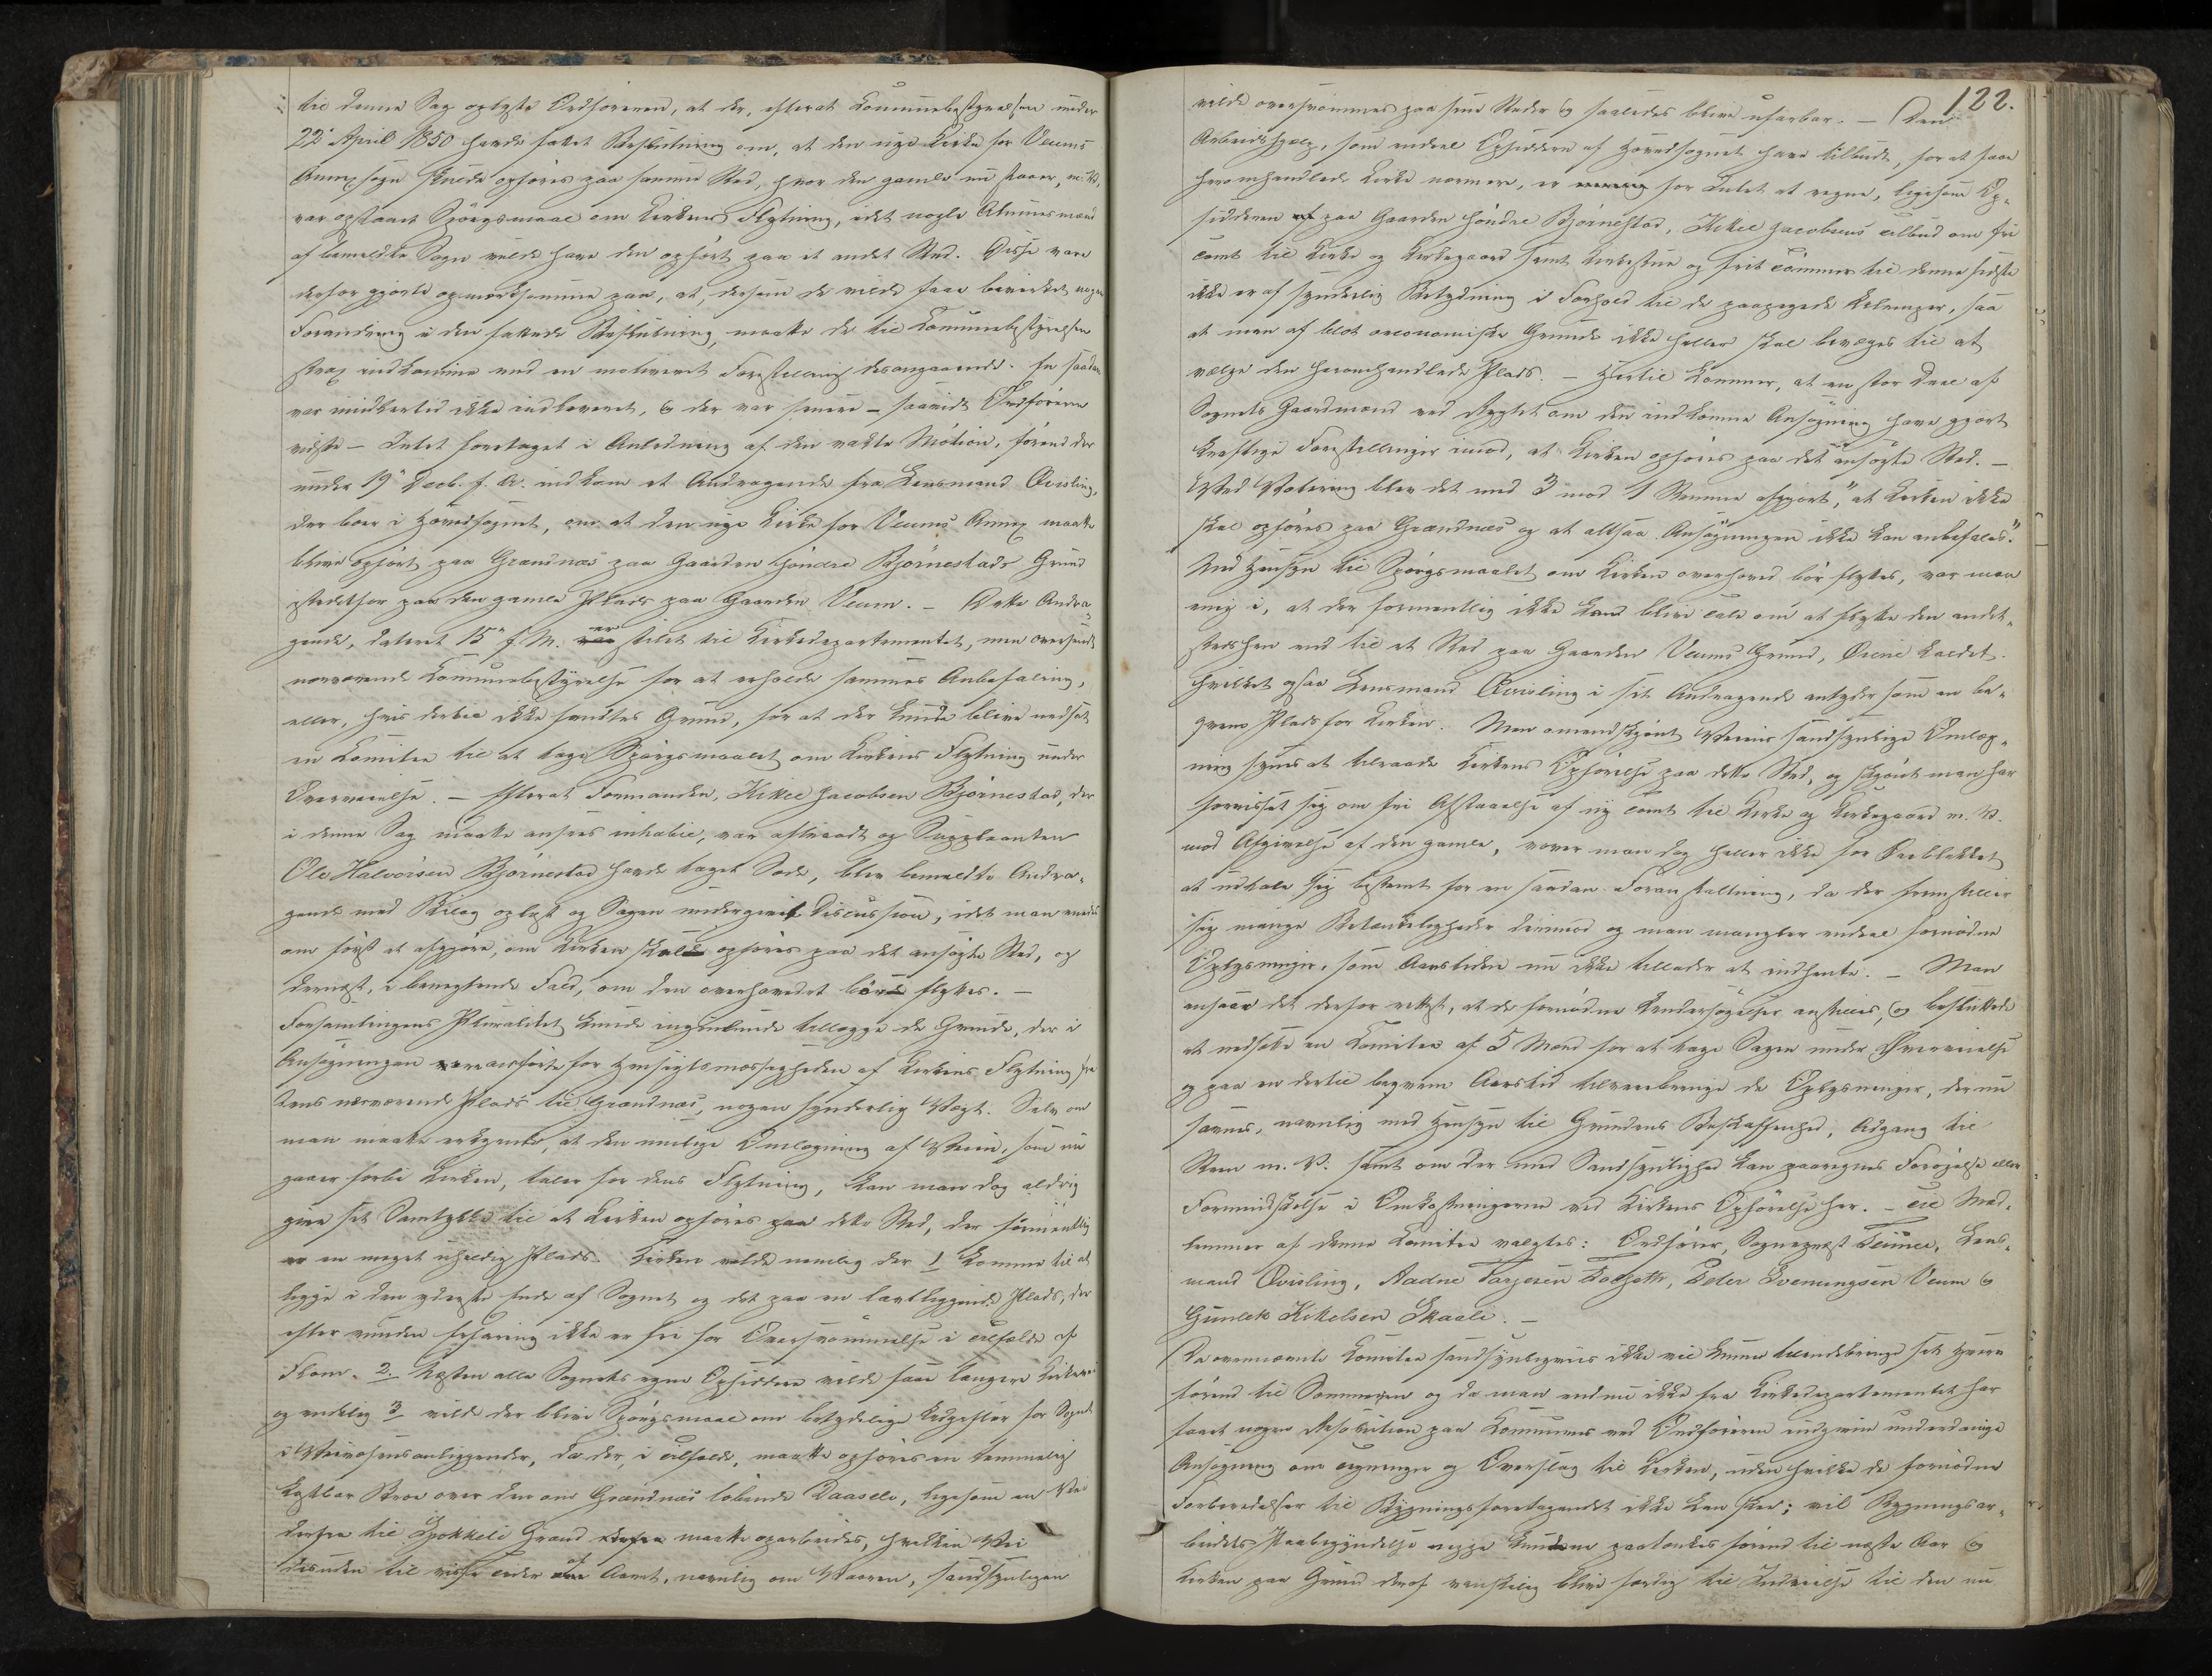 til denne Sag oplyste Ordføreren, at der, efterat Kommunebestyrelsen under
22de April 1850 havde fattet Beslutning om, at den nye Kirke for Veums
Annexsogn skulde opføres paa samme Sted, hvor den gamle nu staaer, m. V.,
var opstaaet Spørgsmaal om Kirkens Flytning, idet nogle Almuesmænd
af bemeldte Sogn vilde have den opført paa et andet Sted. Disse vare
derfor gjorte opmærksomme paa, at, dersom de vilde faae bevirket nogen
Forandring i den fattede Beslutning, maatte de til Kommunebestyrelsen
strax indkomme med en motiveret Forestilling desangaaende. En saadan
var imidlertid ikke indkommet, og der var senere – saavidt Ordføreren
vidste – Intet foretaget i Anledning af den vakte Motion, førend der
under 19de Decb. f. A. indkom et Andragende fra Lensmand Qvisling,
der boer i Hovedsognet, om at den nye Kirke for Veums Annex maatte
blive opført paa Grandnæs paa Gaarden Søndre Bjørnestads Grund
istedetfor paa den gamle Plads paa Gaarden Veum. – Dette Andra-
gende, dateret 15de f. M. er stilet til Kirkedepartementet, men oversendt
nærværende Kommunebestyrelse for at erholde sammes Anbefaling,
eller, hvis dertil ikke fandtes Grund, for at der kunde blive nedsat
en Komitee til at tage Spørgsmaalet om Kirkens Flytning under
Overveielse. – Efterat Formanden, Kikel Jacobsen Bjørnestad, der
i denne Sag maatte ansees inhabil, var aftraadt og Suppleanten
Ole Halvorsen Bjørnestad havde taget Sæde, blev bemeldte Andra-
gende med Bilag oplæst og Sagen undergivet Discussion, idet man enedes
om først at afgjøre, om Kirken skulde opføres paa det ansøgte Sted, og
dernæst, i benegtende Fald, om den overhovedet burde flyttes. –
Forsamlingens Pluralitet kunde ingenlunde tillægge de Grunde, der i
Ansøgningen var anførte for Hensigtsmæssigheden af Kirkens Flytning fra
dens nærværende Plads til Grandnæs, nogen synderlig Vægt. Selv om
man maatte erkjende, at den mulige Omlægning af Veien, som nu
gaaer forbi Kirken, taler for dens Flytning, kan man dog aldrig
give sit Samtykke til at Kirken opføres paa dette Sted, der formentlig
er en meget uheldig Plads. Kirken vilde nemlig der 1/ komme til at
ligge i den yderste Ende af Sognet og det paa en lavtliggende Plads, der
efter vunden Erfaring ikke er fri for Oversvømmelse i Tilfælde af
Flom. 2. Næsten alle Sognets egne Opsiddere vilde faae længere Kirkevei
og endelig 3/ vilde der blive Spørgsmaal om betydelige Udgifter for Sognet
i Veivæsensanliggender, da der, i Tilfælde, maatte opføres en temmelig
kostbar Broe over den om Grandnæs løbende Daaselv, ligesom en Vei
derfra til Spokkeli Grænd maatte oparbeides, hvilken Vei
desuden til visse Tider af Aaret, navnlig om Vaaren, sandsynligen
122.
vilde oversvømmes paa sine Steder og saaledes blive ufarbar. – Den
Arbeidshjælp, som endeel Opsiddere af Hovedsognet have tilbudt, for at faae
heromhandlede Kirke nærmere, er for Intet at regne, ligesom Op-
sidderen paa Gaarden Søndre Bjørnestad, Kikel Jacobsens Tilbud om fri
Tomt til Kirke og Kirkegaard samt Kirkestue og frit Tømmer til denne sidste
ikke er af synderlig Betydning i Forhold til de paapegede Ulemper, saa
at man af blot oeconomiske Grunde ikke heller skal bevæges til at
vælge den heromhandlede Plads. – Hertil kommer, at en stor Deel af
Sognets Gaardmænd ved Rygtet om den indkomne Ansøgning have gjort
kraftige Forestillinger imod, at Kirken opføres paa det ansøgte Sted. –
Ved Votering blev det med 3 mod 1 Stemme afgjort, "at Kirken ikke
skal opføres paa Grandnæs og at altsaa Ansøgningen ikke kan anbefales".
Med Hensyn til Spørgsmaalet om Kirken overhoved bør flyttes, var man
enig i, at der formentlig ikke kan blive Tale om at flytte den andet-
stedshen end til et Sted paa Gaarden Veums Grund, Øiene kaldet.
hvilket ogsaa Lensmand Qvisling i sit Andragende antyder som en be-
qvem Plads for Kirken. Men omendskjønt Veiens sandsynlige Omlæg-
ning synes at tilraade Kirkens Opførelse paa dette Sted, og skjønt man har
forvisset sig om fri Afstaaelse af ny Tomt til Kirke og Kirkegaard m. V.
mod Afgivelse af den gamle, vover man dog heller ikke for Øieblikket
at udtale sig bestemt for en saadan Foranstaltning, da der fremstiller
sig mange Betænkeligheder derimod og man mangler endeel fornødne
Oplysninger, som Aarstiden nu ikke tillader at indhente. – Man
ansaae det derfor rettest, at de fornødne Undersøgelser anstilles, og besluttede
at nedsætte en Komitee af 5 Mænd for at tage Sagen under Overveielse
og paa en dertil beqvem Aarstid tilveiebringe de Oplysninger, der nu
savnes, navnlig med Hensyn til Grundens Beskaffenhed, Adgang til
Steen m. V. samt om der med Sandsynlighed kan paaregnes Forøgelse eller
Formindskelse i Omkostningerne ved Kirkens Opførelse her. – Til Med-
lemmer af denne Komitee valgtes: Ordfører, Sogneprest Teiner, Lens-
mand Qvisling, Aadne Tarjesen Folseth, Peder Evenungsen Veum og
Gunlek Kikelsen Skaali. –
Da ovennævnte Komitee sandsynligviis ikke vil kunne tilendebringe sit Hverv
førend til Sommeren og da man endnu ikke fra Kirkedepartementet har
faaet nogen Resolution paa Kommunens ved Ordføreren indgivne underdanige
Ansøgning om Tegninger og Overslag til Kirken, uden hvilke de fornødne
Forberedelser til Bygningsforetagendet ikke kan skee; vil Bygningsar-
beidets Paabegyndelse neppe kunne paatænkes førend til næste Aar og
Kirken paa Grund deraf vanskelig blive færdig til Indvielse til den nu